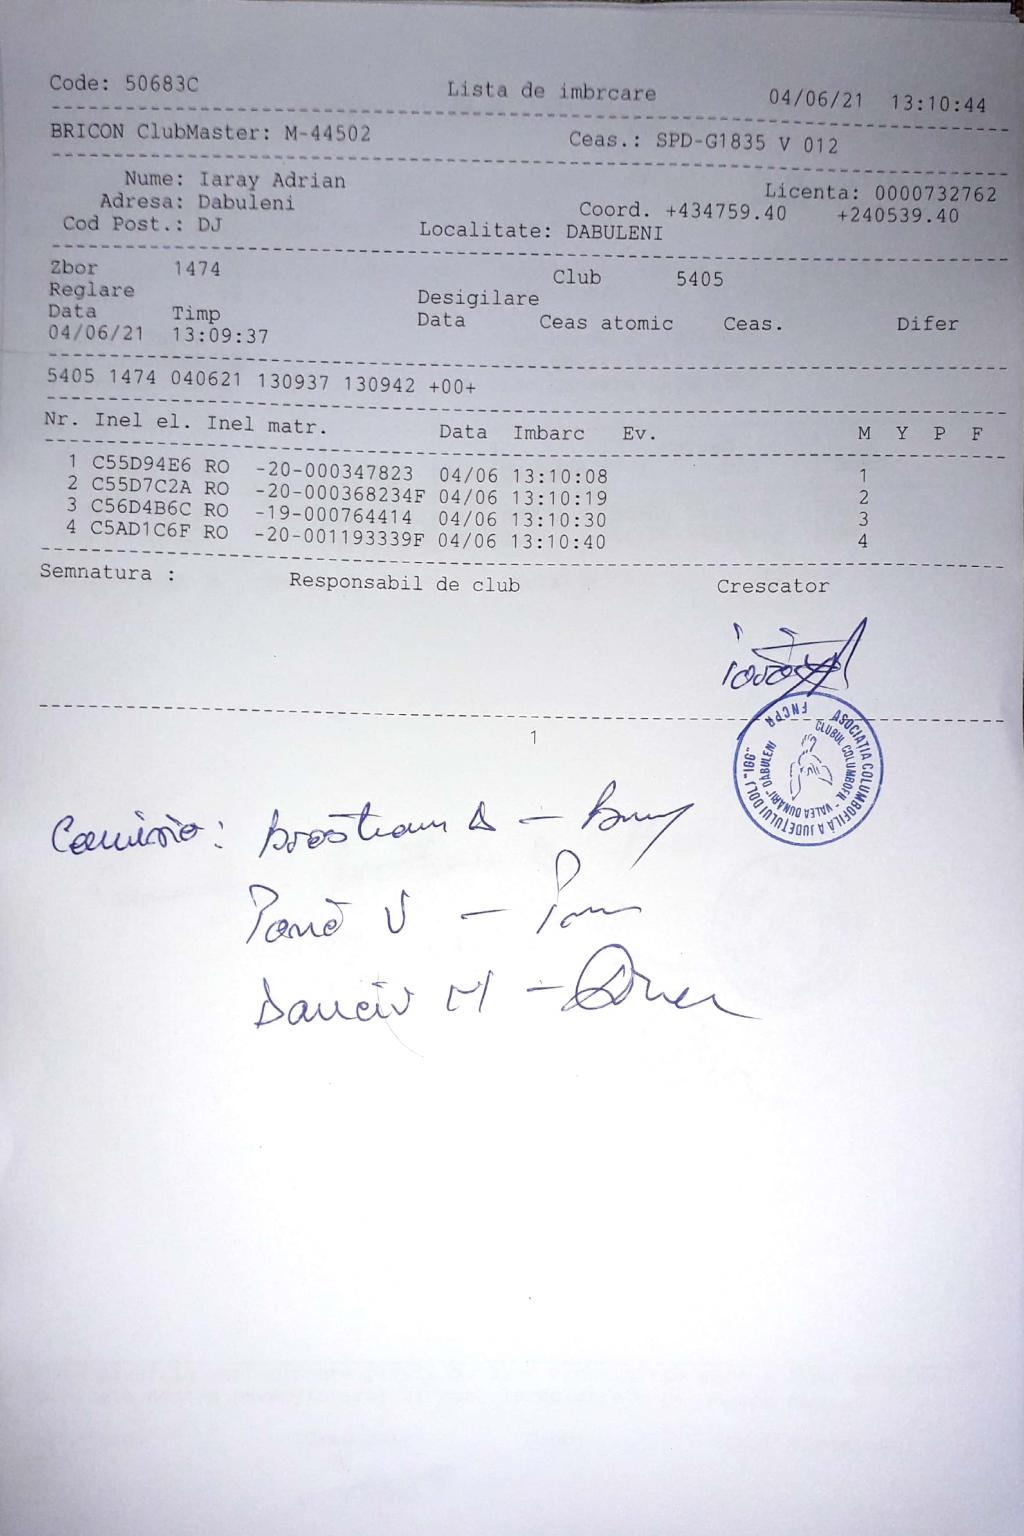 Code: 50683C Lista de imbrcare 04/06/21 13:10:44
BRICON ClubMaster: M-44502 Ceas.: SPD-G1835 V 012
Nume: Iaray Adrian Licenta: 0000732762
Adresa: Dabuleni Coord. +434759.40 +240539.40
Cod Post.: DJ Localitate: DABULENI
Zbor 1474 Club 5405
Reglare Desigilare
Data Timp Data Ceas atomic Ceas. Difer
04/06/21 13:09:37
5405 1474 040621 130937 130942 +00+
Nr. Inel el. Inel matr. Data Imbarc Ev. M Y P F
1 C55D94E6 RO -20-000347823 04/06 13:10:08 1
2 C55D7C2A RO -20-000368234F 04/06 13:10:19 2
3 C56D4B6C RO -19-000764414 04/06 13:10:30 3
4 C5AD1C6F RO -20-001193339F 04/06 13:10:40 4
Semnatura : Responsabil de club Crescator
ASOCIATIA COLUMBOFILĂ A JUDEŢULUI DOLJ "IGG"
FNCPR
CLUBUL COLUMBOFIL - VALEA DUNĂRII DĂBULENI
1
Comisia:
Pană V -
Danciu M -